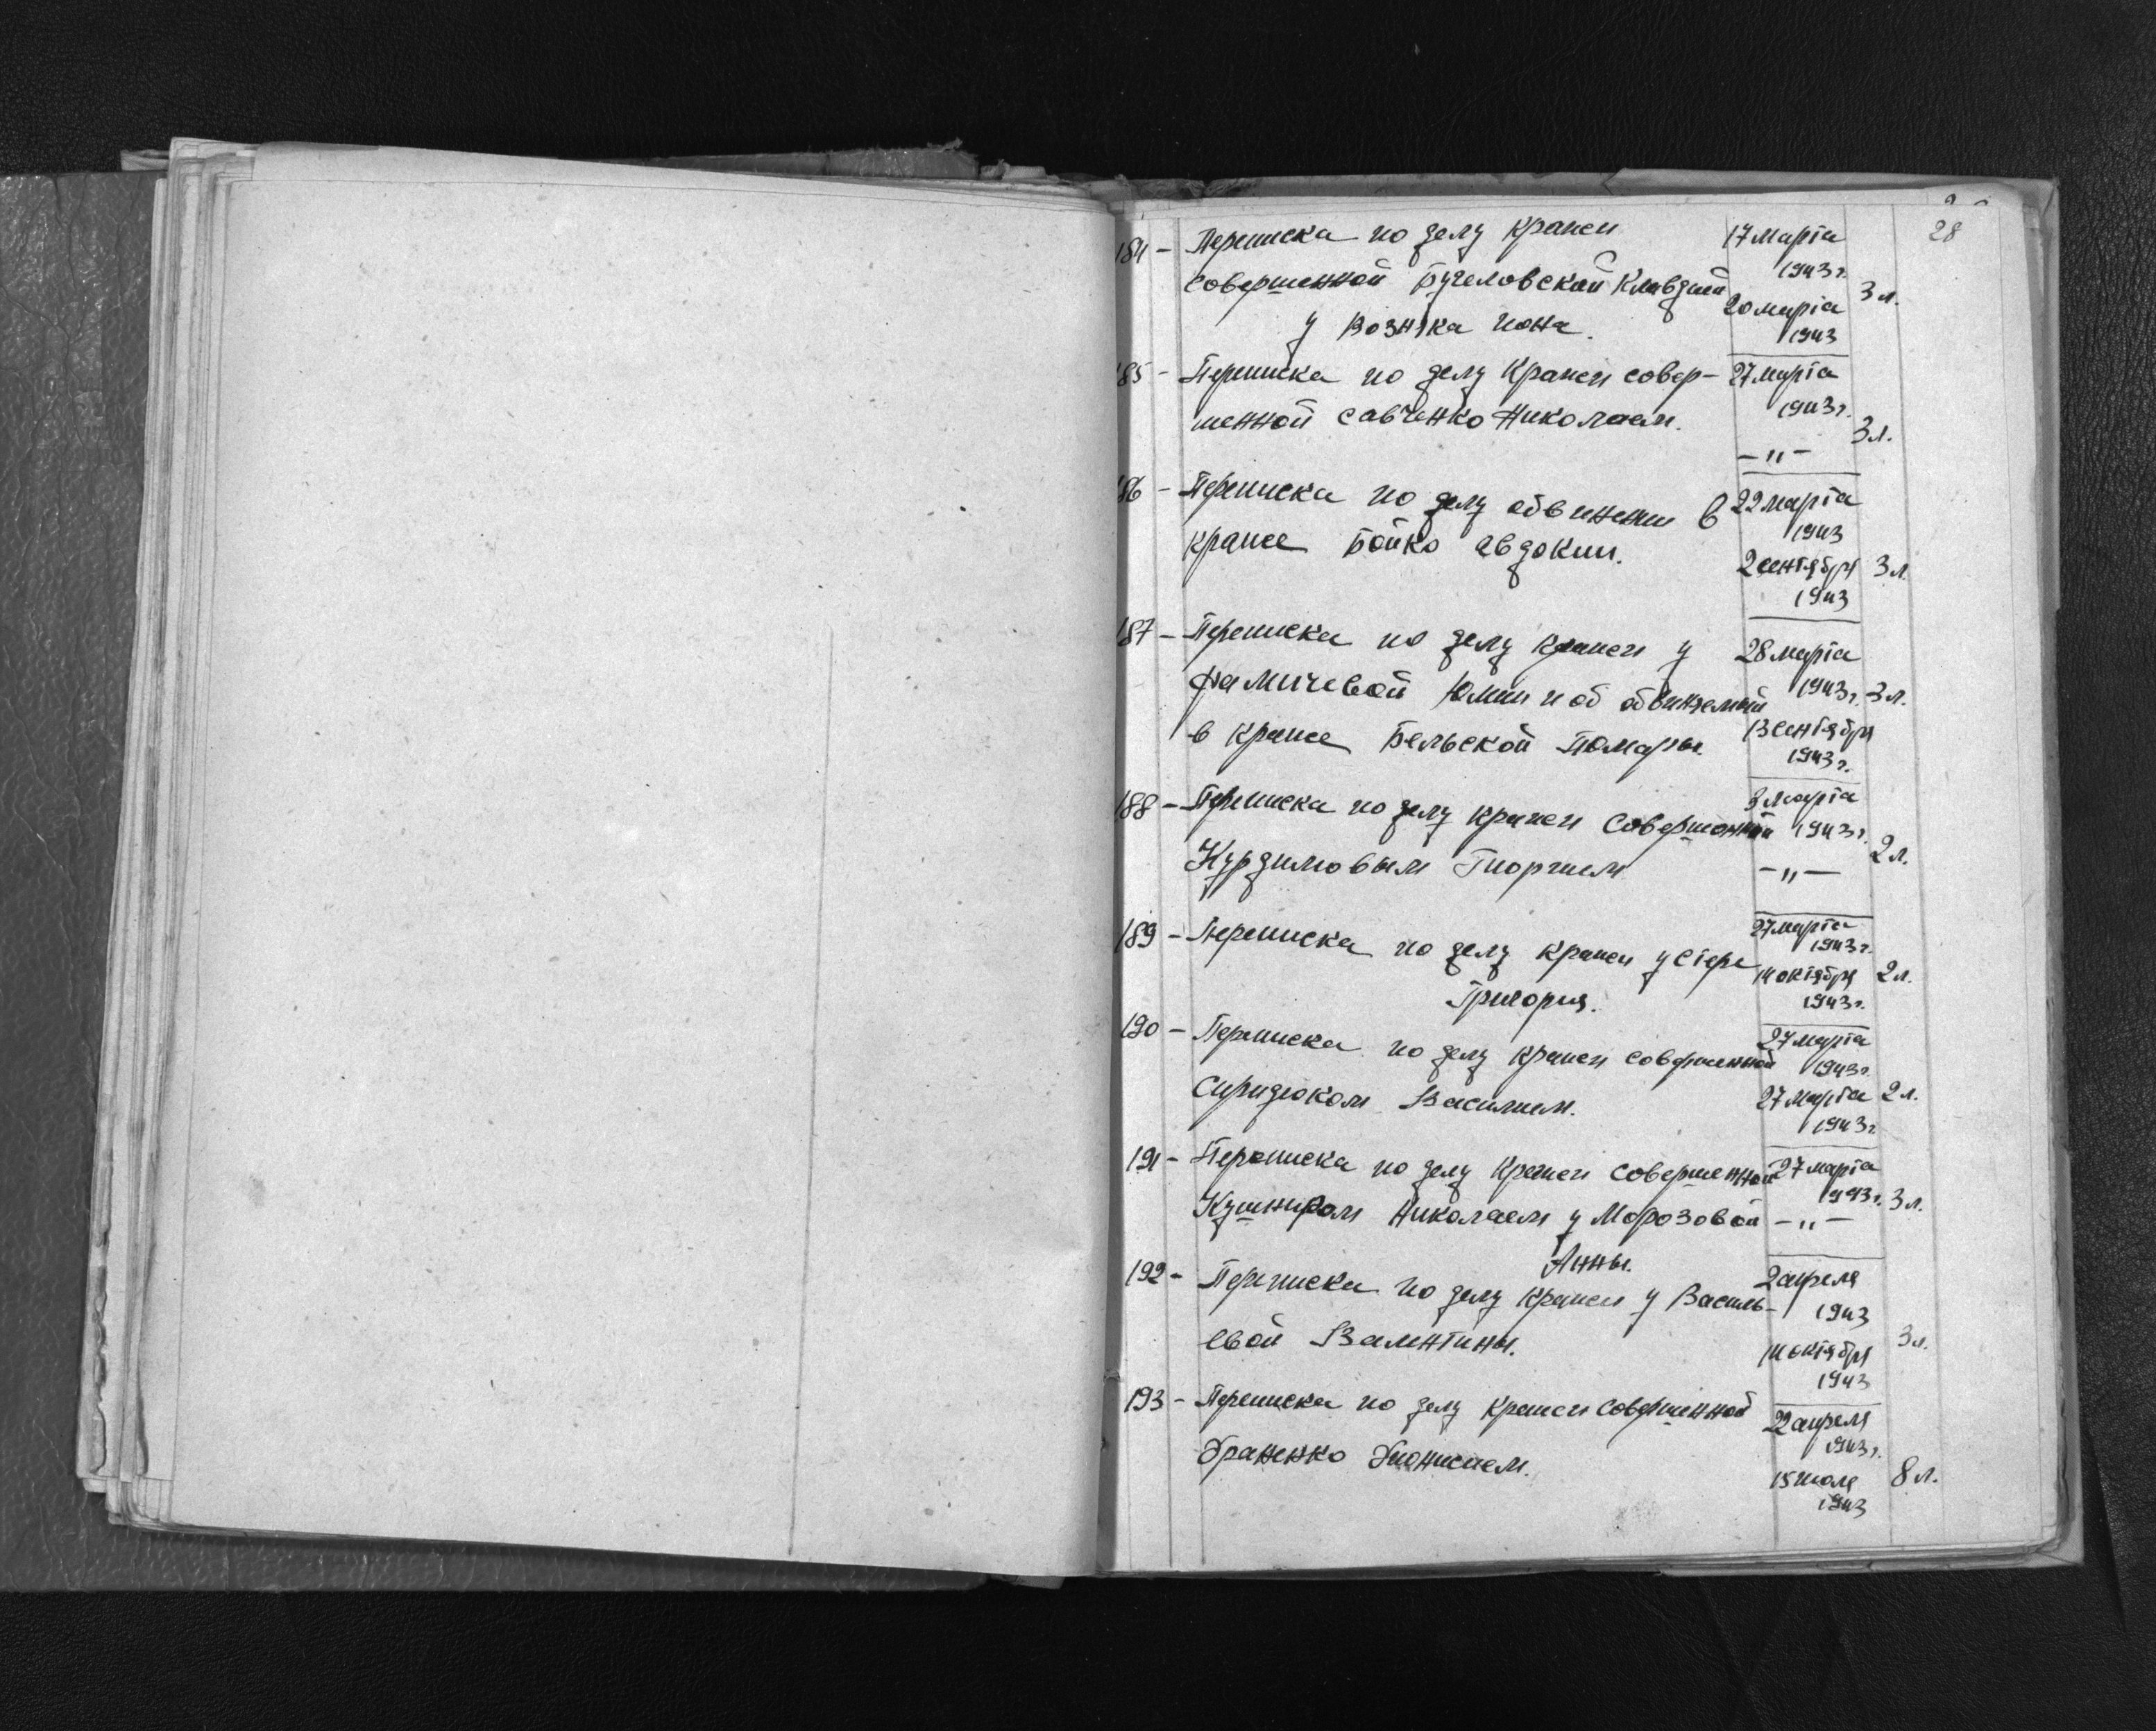 28
184 - Переписка по делу кражи 17 марта
совершенной Бучеловской Клавдией 1943 г. 3 л.
у Возняка Иона. 20 марта
1943
185 - Переписка по делу кражи совер- 27 марта
шенной Савченко Николаем. 1943 г. 3 л.
- " -
186 - Переписка по делу обвинении в 22 марта
краже Бойко Авдокии. 1943
2 сентября 3 л.
1943
187 - Переписка по делу кражи у 28 марта
Юлии и об обвинении 1943 г. 3 л.
в краже Бельской Томары. 13 сентября
1943 г.
188 - Переписка по делу кражи совершонной 3 марта
Курдиловым Гиоргием 1943 г. 2 л.
- " -
189 - Переписка по делу кражи у Стере 27 марта
1943 г.
Григория. 14 октября 2 л.
1943 г.
190 - Переписка по делу кражи совершенной 27 марта
1943 г.
Спридюком Василием. 27 марта 2 л.
1943 г.
191 - Переписка по делу кражи совершенной 27 марта
Кушниром Николаем у Морозовой 1943 г. 3 л.
Анны. - " -
192 - Переписка по делу кражи у Василь- 2 апреля
1943
евой Валентины. 14 октября 3 л.
1943
193 - Переписка по делу кражи совершенной 22 апреля
1943 г.
Драненко Дионисием. 15 июля 8 л.
1943